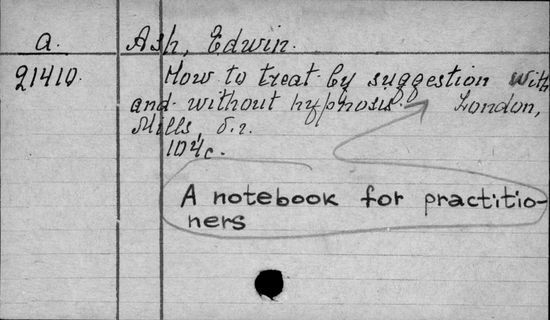 a. Ash, Edwin.
21410. How to treat by suggestion with
and without hyphosis. London,
Mills, s.a.
104c.
A notebook for practitio-
ners